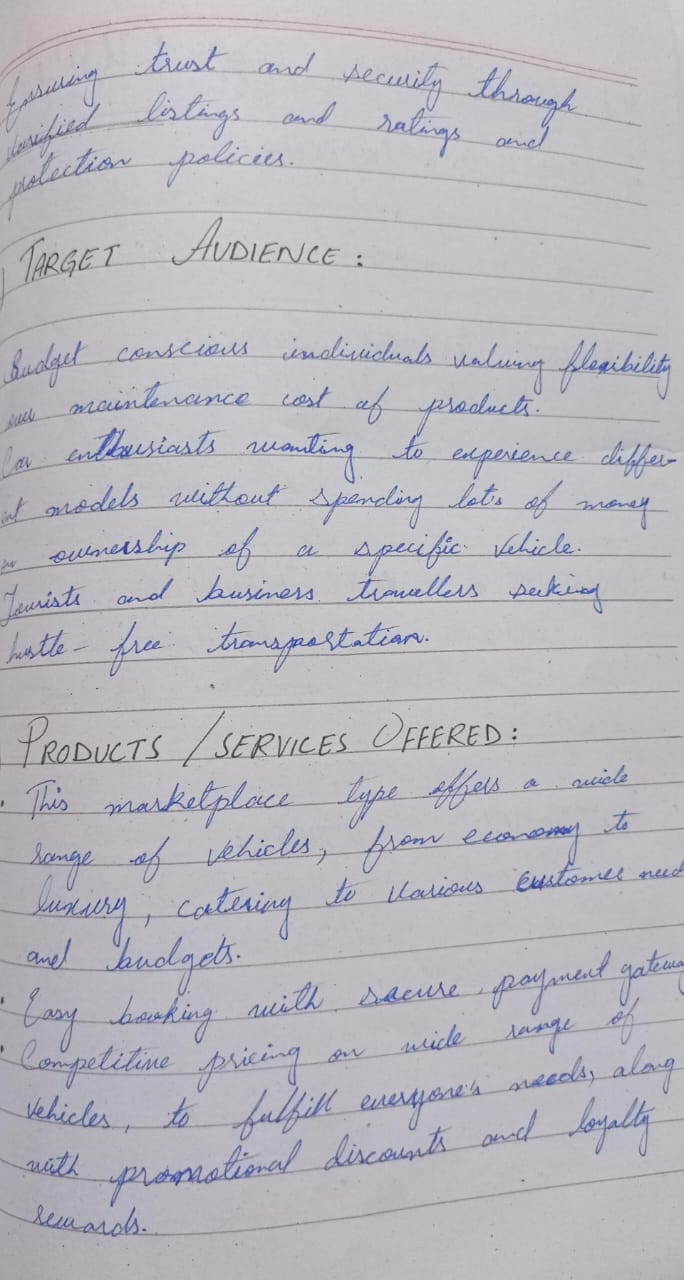 Ensuring trust and security through
varified listings and ratings and
protection policies.
TARGET AUDIENCE :
Budget conscious individuals valuing flexibility
over maintenance cost of products.
Car enthusiasts wanting to experience differ-
ent models without spending lot's of money
ownership of a specific vehicle.
Tourists and business travellers seeking
hustle-free transportation.
PRODUCTS / SERVICES OFFERED :
• This marketplace type offers a wide
range of vehicles, from economy to
luxury, catering to various customer need
and budgets.
• Easy booking with secure payment gateway
• Competitive pricing on wide range of
vehicles, to fulfill everyone's needs, along
with promotional discounts and loyalty
rewards.